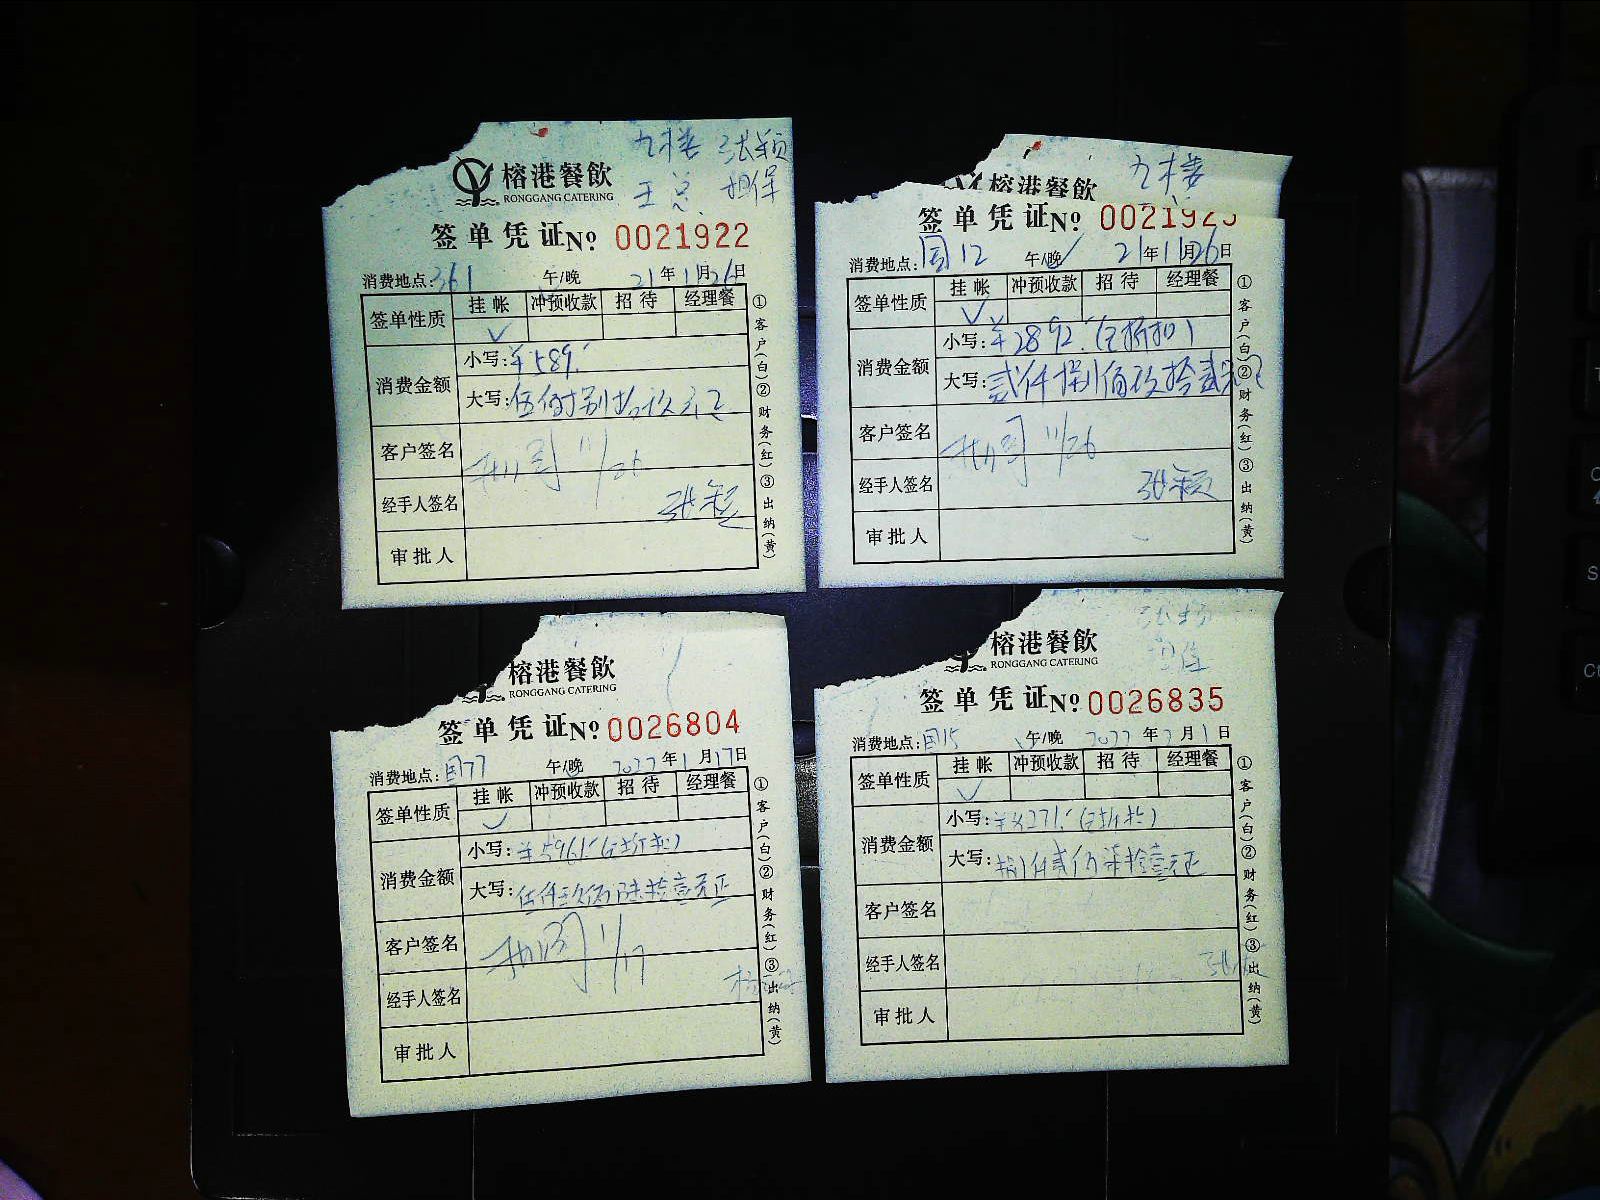 九楼 张颖
王总 担保
榕港餐飲
RONGGANG CATERING
签单凭证 No 0021922
消费地点: 361 午/晚 21年11月26日
签单性质 挂帐 冲预收款 招待 经理餐
✓
消费金额 小写: ¥589.
大写: 伍佰捌拾玖元正
客户签名 11/26
经手人签名 张颖
审批人
①客户(白)②财务(红)③出纳(黄)
九楼
榕港餐飲
签单凭证 No 002192
消费地点: 国12 午/晚 ✓ 21年11月26日
签单性质 挂帐 冲预收款 招待 经理餐
✓
消费金额 小写: ¥2892.(已折扣)
大写: 贰仟捌佰玖拾贰元
客户签名 11/26
经手人签名 张颖
审批人
①客户(白)②财务(红)③出纳(黄)
榕港餐飲
RONGGANG CATERING
签单凭证 No 0026804
消费地点: 国77 午/晚 2022年1月17日
签单性质 挂帐 冲预收款 招待 经理餐
✓
消费金额 小写: ¥5961.(已折扣)
大写: 伍仟玖佰陆拾壹元正
客户签名 1/17
经手人签名
审批人
①客户(白)②财务(红)③出纳(黄)
榕港餐飲
RONGGANG CATERING
签单凭证 No 0026835
消费地点: 国15 午/晚 2022年2月1日
签单性质 挂帐 冲预收款 招待 经理餐
✓
消费金额 小写: ¥8271.(已折扣)
大写: 捌仟贰佰柒拾壹元正
客户签名
经手人签名
审批人
①客户(白)②财务(红)③出纳(黄)